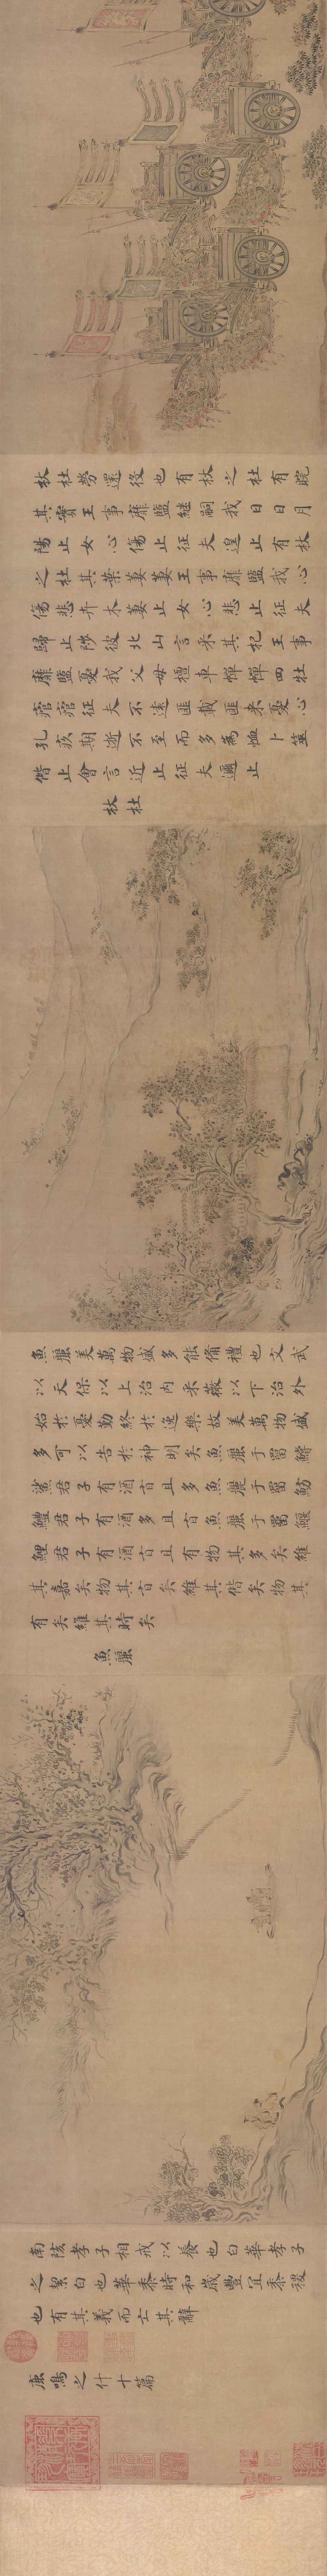 杕杜勞還役也有杕之杜有睆
其實王事靡盬繼嗣我日日月
陽止女心傷止征夫遑止有杕
之杜其葉萋萋王事靡盬我心
傷悲卉木萋止女心悲止征夫
歸止陟彼北山言采其杞王事
靡盬憂我父母檀車幝幝四牡
痯痯征夫不遠匪載匪來憂心
孔疚期逝不至而多為恤卜筮
偕止會言近止征夫邇止
杕杜
魚麗美萬物盛多能備禮也文武
以天保以上治內采薇以下治外
始於憂勤終於逸樂故美萬物盛
多可以告於神明矣魚麗于罶鱨
鯊君子有酒旨且多魚麗于罶魴
鱧君子有酒多且旨魚麗于罶鰋
鯉君子有酒旨且有物其多矣維
其嘉矣物其旨矣維其偕矣物其
有矣維其時矣
魚麗
南陔孝子相戒以養也白華孝子
之絜白也華黍時和歲豐宜黍稷
也有其義而亡其辭
鹿鳴之什十篇